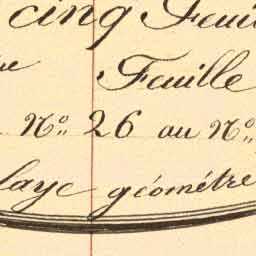 cinq Feuil
Feuille
N.o 26 au N.o
laye géométre